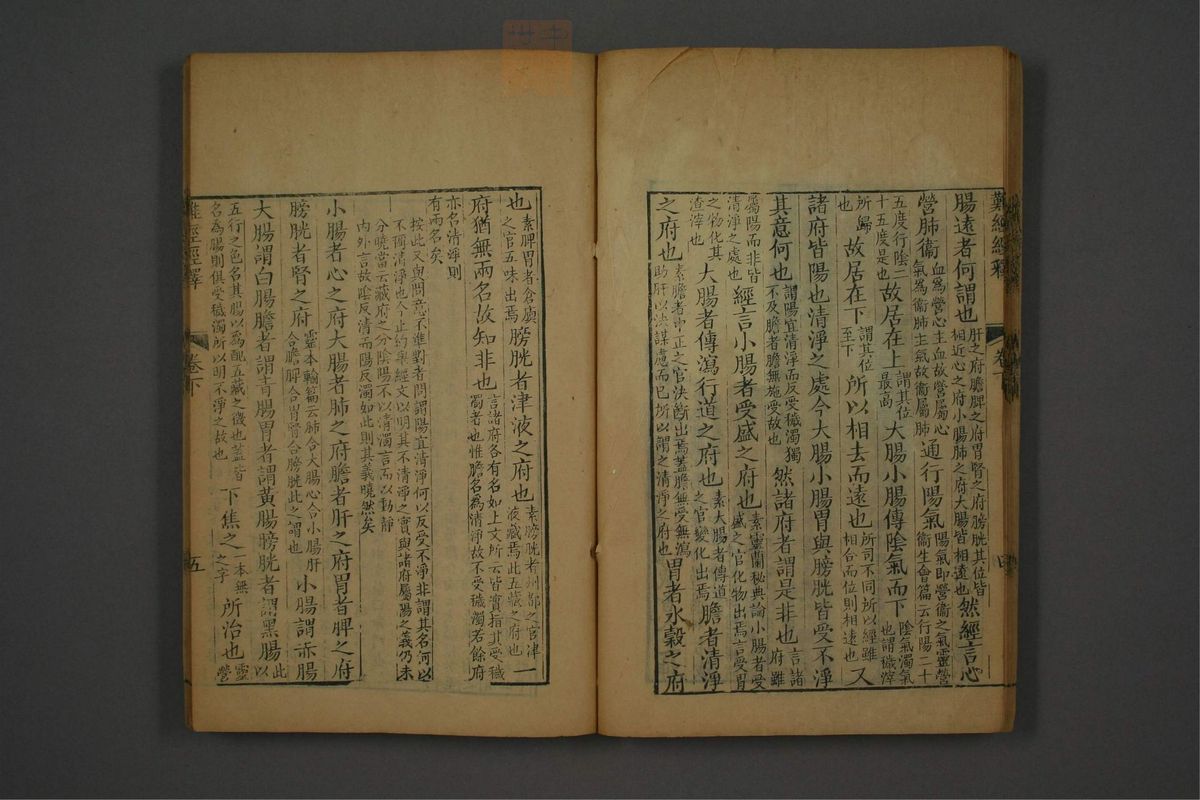 難經經釋 卷下 四
腸遠者何謂也肝之府膽脾之府胃腎之府膀胱其位皆相近心之府小腸肺之府大腸皆相遠也然經言心
營肺衞血為營心主血故營屬心氣為衞肺主氣故衞屬肺通行陽氣陽氣即營衞之氣靈營衞生會篇云行陽二十
五度行陰二十五度是也故居在上謂其位最高大腸小腸傳陰氣而下陰氣濁氣也謂穢滓
所歸也故居在下謂其位至下所以相去而遠也所司不同所以經雖相合而位則相遠也又
諸府皆陽也清淨之處今大腸小腸胃與膀胱皆受不淨
其意何也謂陽宜清淨而反受穢濁獨不及膽者膽無施受故也然諸府者謂是非也言諸府雖
屬陽而非皆清淨之處也經言小腸者受盛之府也素靈蘭秘典論小腸者受盛之官化物出焉言受胃
之物化其渣滓也大腸者傳瀉行道之府也素大腸者傳道之官變化出焉膽者清淨
之府也素膽者中正之官決斷出焉蓋膽無受無瀉助肝以決謀慮而已所以謂之清淨之府也胃者水穀之府
也素脾胃者倉廩之官五味出焉膀胱者津液之府也素膀胱者州都之官津液藏焉此五藏之府也一
府猶無兩名故知非也言諸府各有名如上文所云皆實指其受穢濁者也惟膽名為清淨故不受穢濁若餘府
亦名清淨則有兩名矣
按此又與問意不準對者問謂陽宜清淨何以反受不淨非謂其名何以
不獨清淨也今止約舉經文以明其不清淨之實與諸府屬陽之義仍未
分曉當云藏府之分陰陽不以清濁言而以動靜
內外言故陰反清而陽反濁如此則其義曉然矣
小腸者心之府大腸者肺之府膽者肝之府胃者脾之府
膀胱者腎之府靈本輸篇云肺合大腸心合小腸肝合膽脾合胃腎合膀胱此之謂也小腸謂赤腸
大腸謂白腸膽者謂青腸胃者謂黃腸膀胱者謂黑腸此以
五行之色名其腸以為配五藏之徵也蓋皆名為腸則俱受穢濁所以明不淨之故也下焦之一本無之字所治也靈營
難經經釋 卷下 五